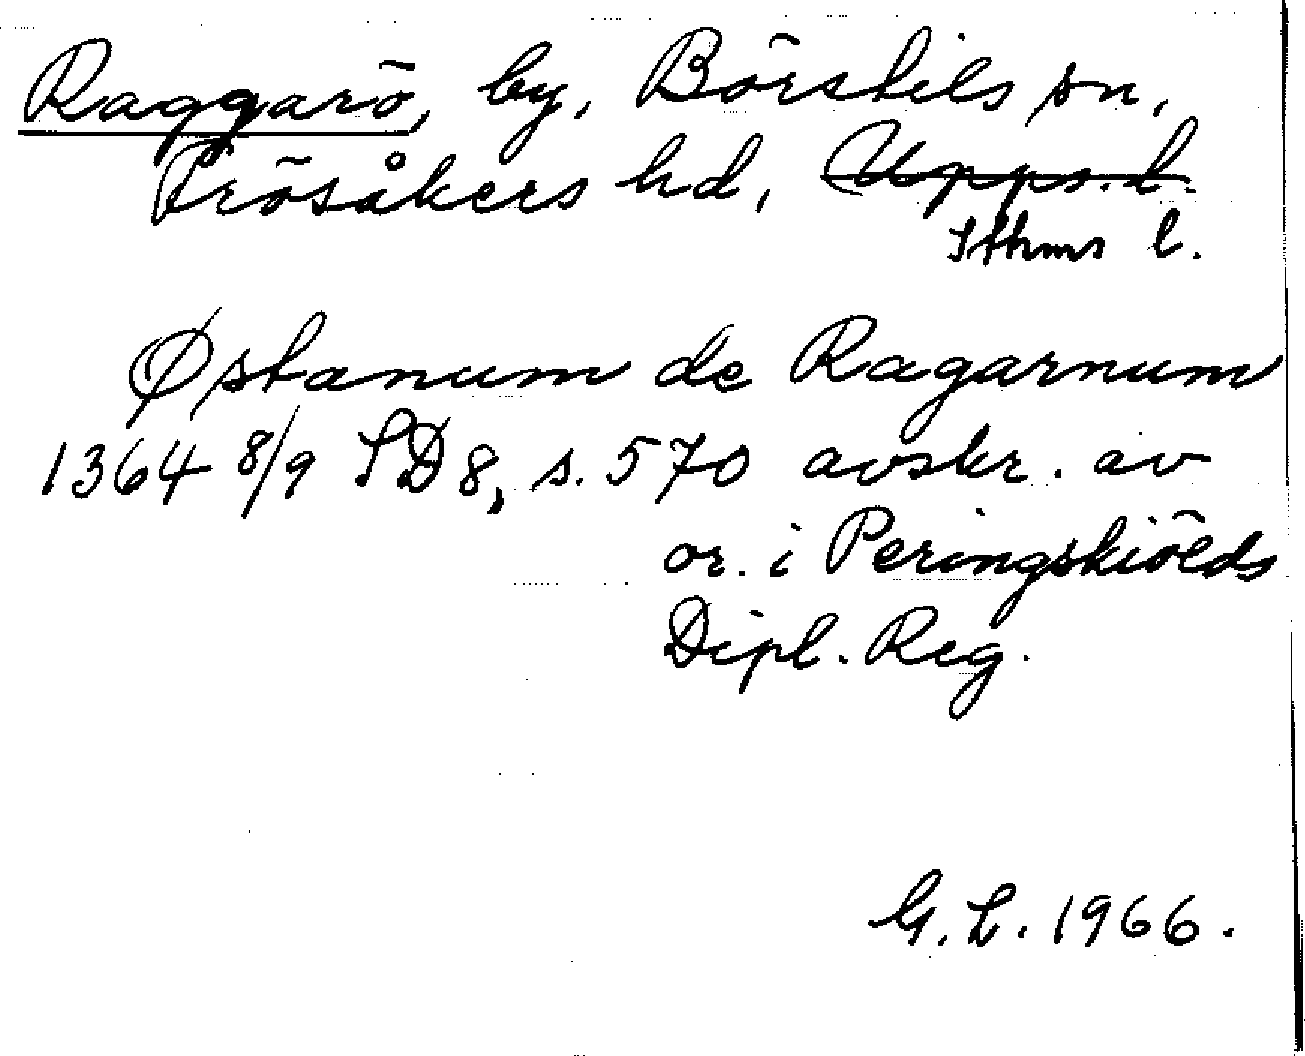 Raggarö, by, Börstils sn,
Frösåkers hd, Upps. l.
Sthms l.
Østanum de Ragarnum
1364 8/9 SD 8, s. 570 avskr. av
or. i Peringskiölds
Dipl. Reg.
G. L. 1966.